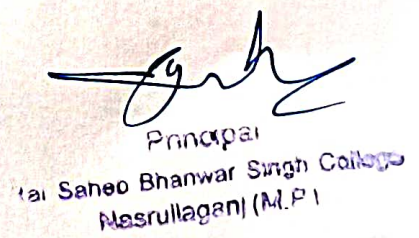 Principal
Rai Saheb Bhanwar Singh College
Nasrullaganj (M.P.)